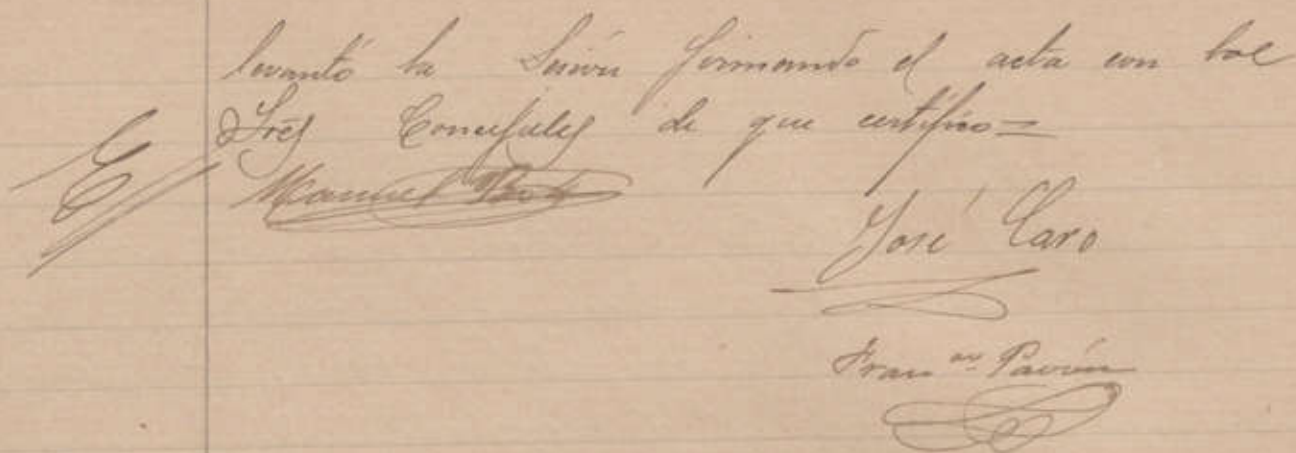 levantó la Sesión firmando el acta con los
Sres Concejales de que certifico =
E
Manuel
José Caro
Fran.co Pavón